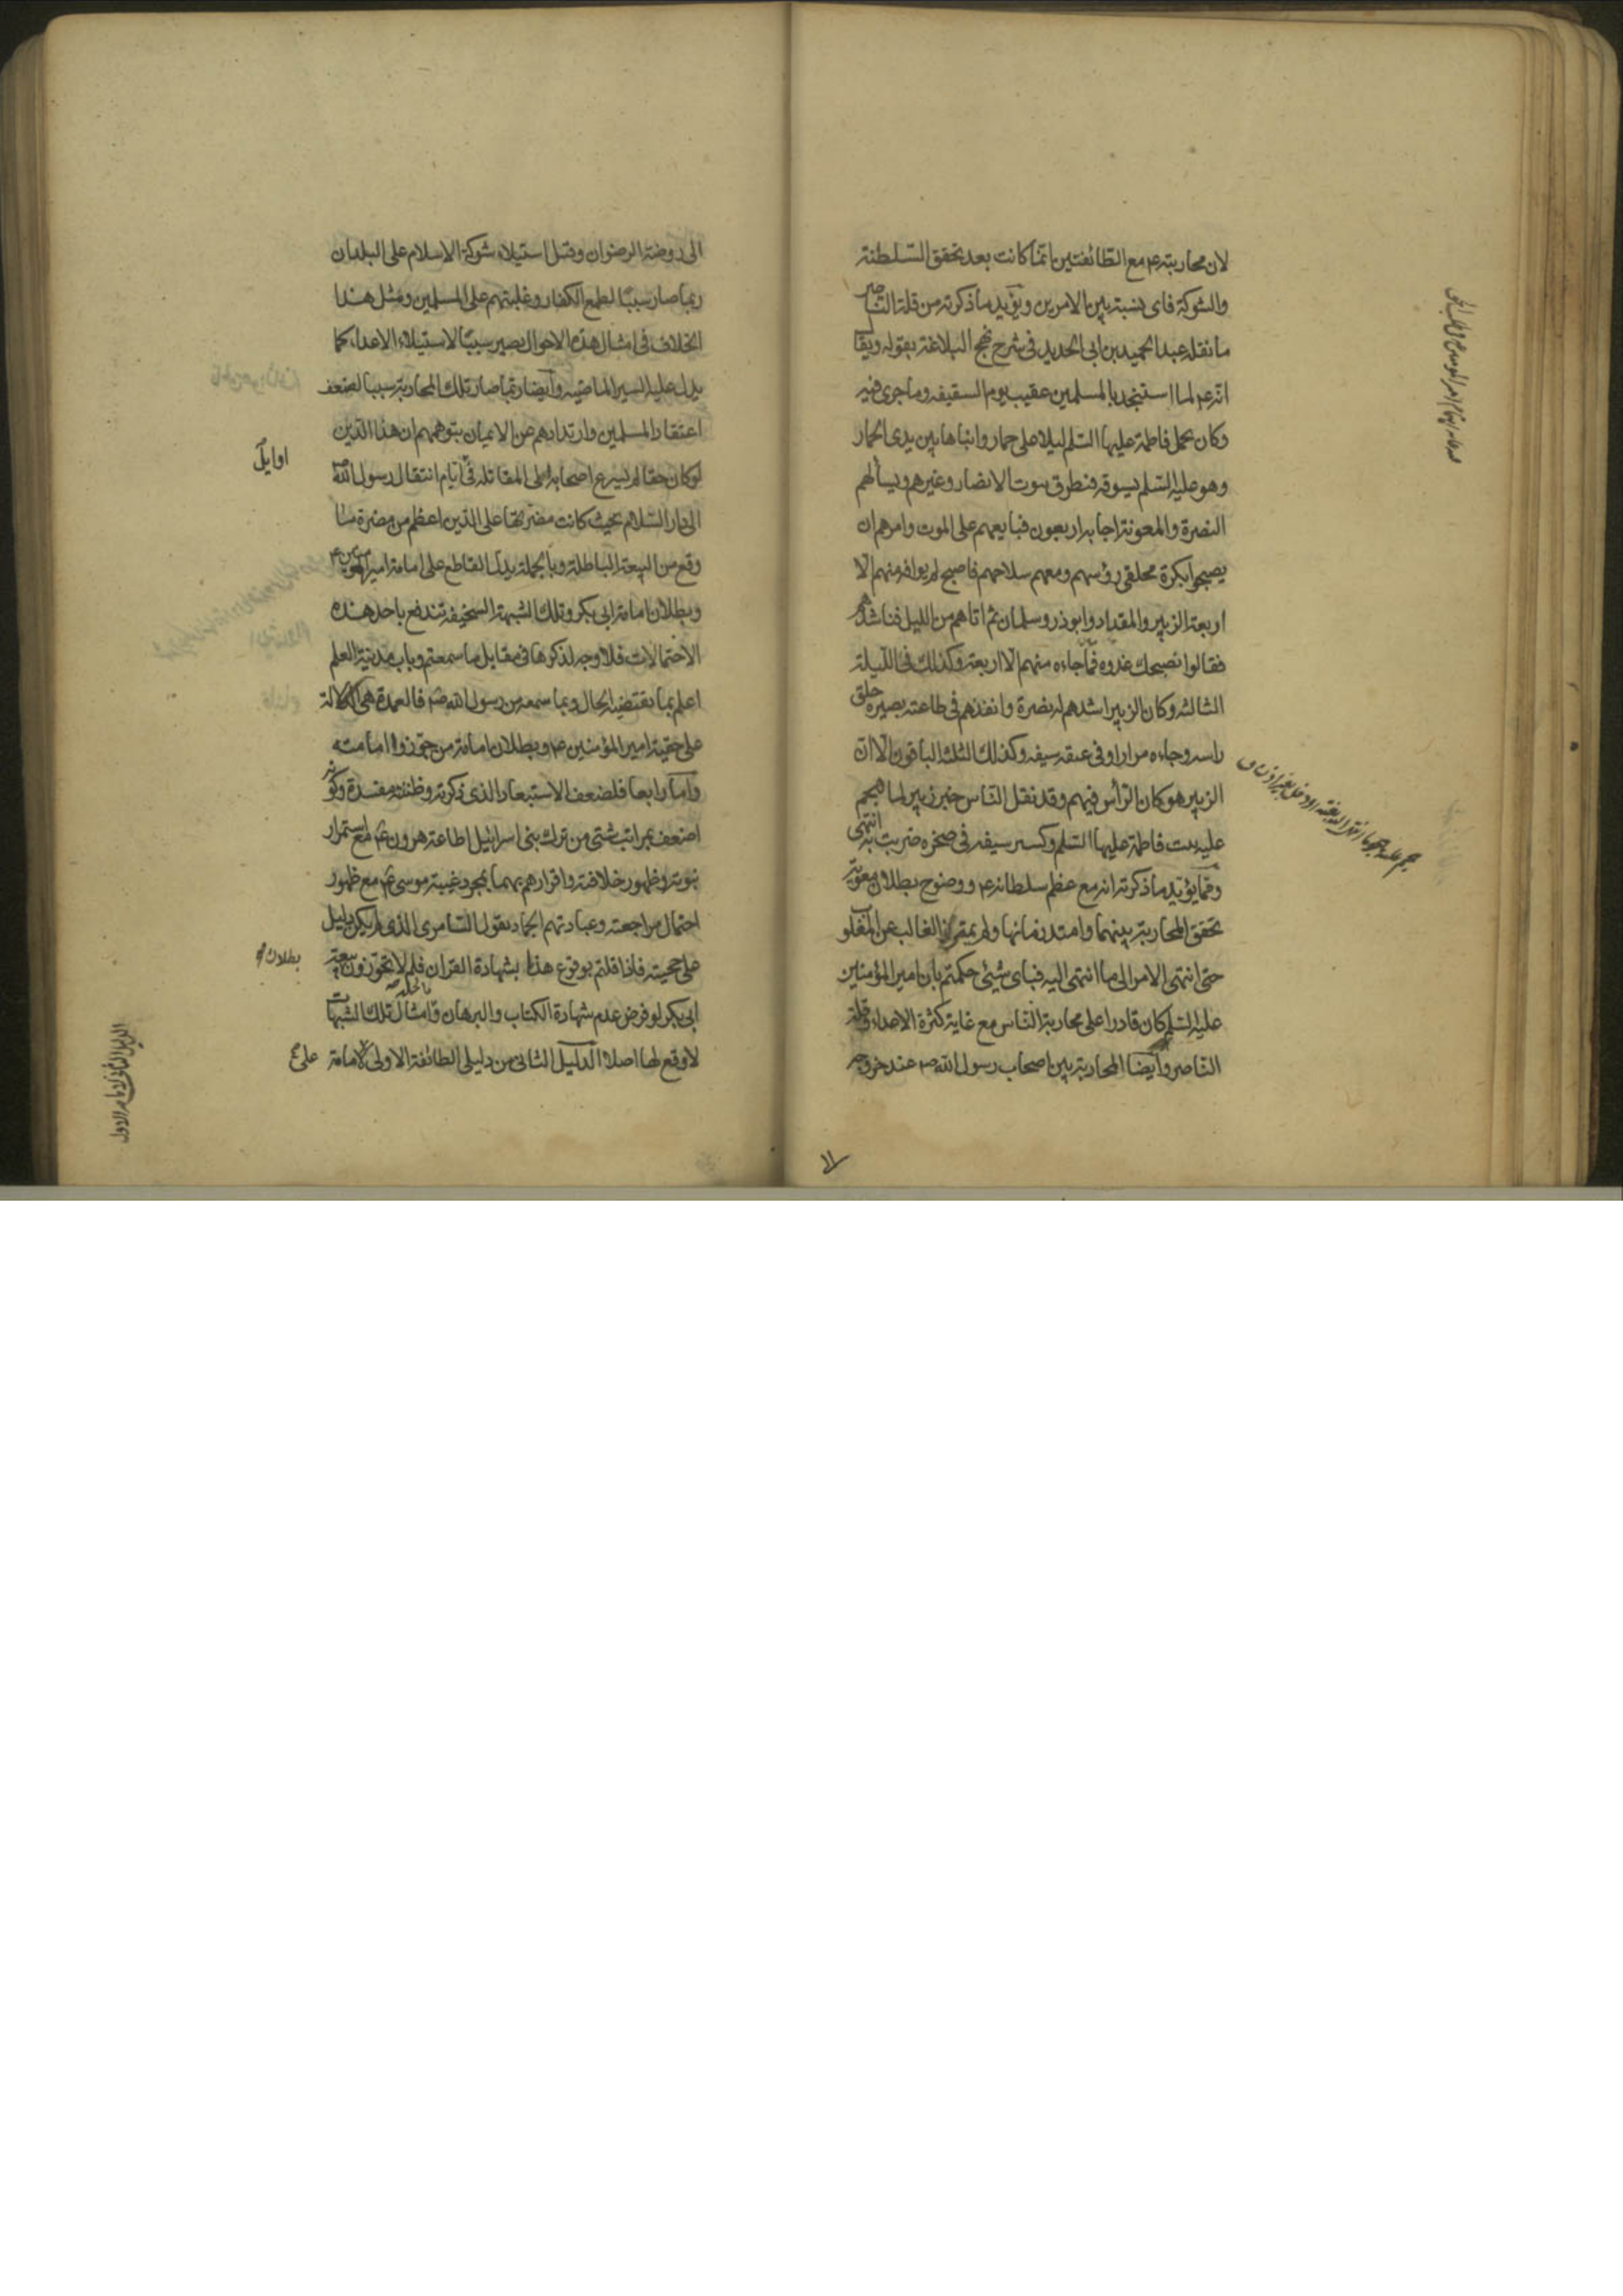 لان محاربته ع مع الطائفتين انما كانت بعد تحقق السلطنة
والشوكة فاى نسبة بين الامرين ويؤيد ما ذكرته من قلة الناصر
ما نقله عبد الحميد بن ابى الحديد فى شرح نهج البلاغة بقوله ويقا
انه ع لما استنجد بالمسلمين عقيب يوم السقيفه وما جرى فيه
وكان يحمل فاطمة عليها السلم ليلا على حمار وابناها بين يدى الحمار
وهو عليه السلم يسوقه فيطرق بيوت الانصار وغيرهم ويسألهم
النصرة والمعونة اجابه اربعون فبايعهم على الموت وامرهم ان
يصبحوا بكرة محلقى رؤسهم ومعهم سلاحهم فاصبح لم يوافه منهم الا
اربعة الزبير والمقداد وابوذر وسلمان ثم اتاهم من الليل فناشدهم
فقالوا نصبحك غدوه فما جاءه منهم الا اربعة وكذلك فى الليلة
الثالثه وكان الزبير اشدهم له نصرة وانفذهم فى طاعته بصيره حلق
راسه وجاءه مرارا وفى عنقه سيفه وكذلك الثلثة الباقون الا ان
الزبير هو كان الرأس فيهم وقد نقل الناس خبر زبير لما هجم
عليه ببيت فاطمة عليها السلم وكسر سيفه فى صخره ضربت به انتهى
ومما يؤيد ما ذكرته انه مع عظم سلطانه ع ووضوح بطلان معوية
تحقق المحاربة بينهما وامتد زمانها ولم يتميز الغالب عن المغلو
حتى انتهى الامر الى ما انتهى اليه فباى شيئ حكمتم بان امير المؤمنين
عليه السلم كان قادرا على محاربة الناس مع غاية كثرة الاعداء وقلة
الناصر وايضا المحاربة بين اصحاب رسول الله ص عند خروجه
الى روضة الرضوان وقبل استيلاء شوكة الاسلام على البلدان
ربما صار سببا لطمع الكفار وغلبتهم على المسلمين ومثل هذا
الخلاف فى امثال هذه الاحوال يصير سببا لاستيلاء الاعداء كما
يدل عليه السير الماضيه وايضا ربما صار تلك المحاربة سببا لضعف
اعتقاد المسلمين وارتدادهم عن الايمان بتوهمهم ان هذا الدين
لو كان حقا لم يسرع اصحابه الى المقاتلة فى ايام انتقال رسول الله ص
اوايل
الى دار السلام بحيث كانت مضرتها على الدين اعظم من مضرة ما
وقع من البيعة الباطلة وبالجملة يدل القاطع على امامة امير المؤمنين ع
وبطلان امامة ابى بكر وتلك الشبهة السخيفة تندفع باحد هذه
الاحتمالات فلا وجه لذكرها فى مقابل ما سمعتم وباب مدينة العلم
اعلم بما يقتضيه الحال وبما سمعه من رسول الله ص فالعمدة هى الدلالة
على حقية امير المؤمنين ع وبطلان امامة من جوزوا امامته
واما رابعا فلضعف الاستبعاد الذى ذكرته وظننته مفسدة وكونه
اضعف بمراتب شتى من ترك بنى اسرائيل اطاعة هرون ع مع استمرار
نبوته وظهور خلافته واقرارهم بهما بمجرد غيبة موسى ع مع ظهور
احتمال مراجعته وعبادتهم الجماد بقول السامرى الذى لم يكن دليل
على حجيته فاذا قلتم بوقوع هذا بشهادة القران فلم لا تجوزون بيعة
بطلان
ابى بكر لو فرض عدم شهادة الكتاب والبرهان وبالجملة امثال تلك الشبهات
لا وقع لها اصلا الدليل الثانى من دليلى الطائفة الاولى لامامة على ع
الدليل الثانى لامامة الاول